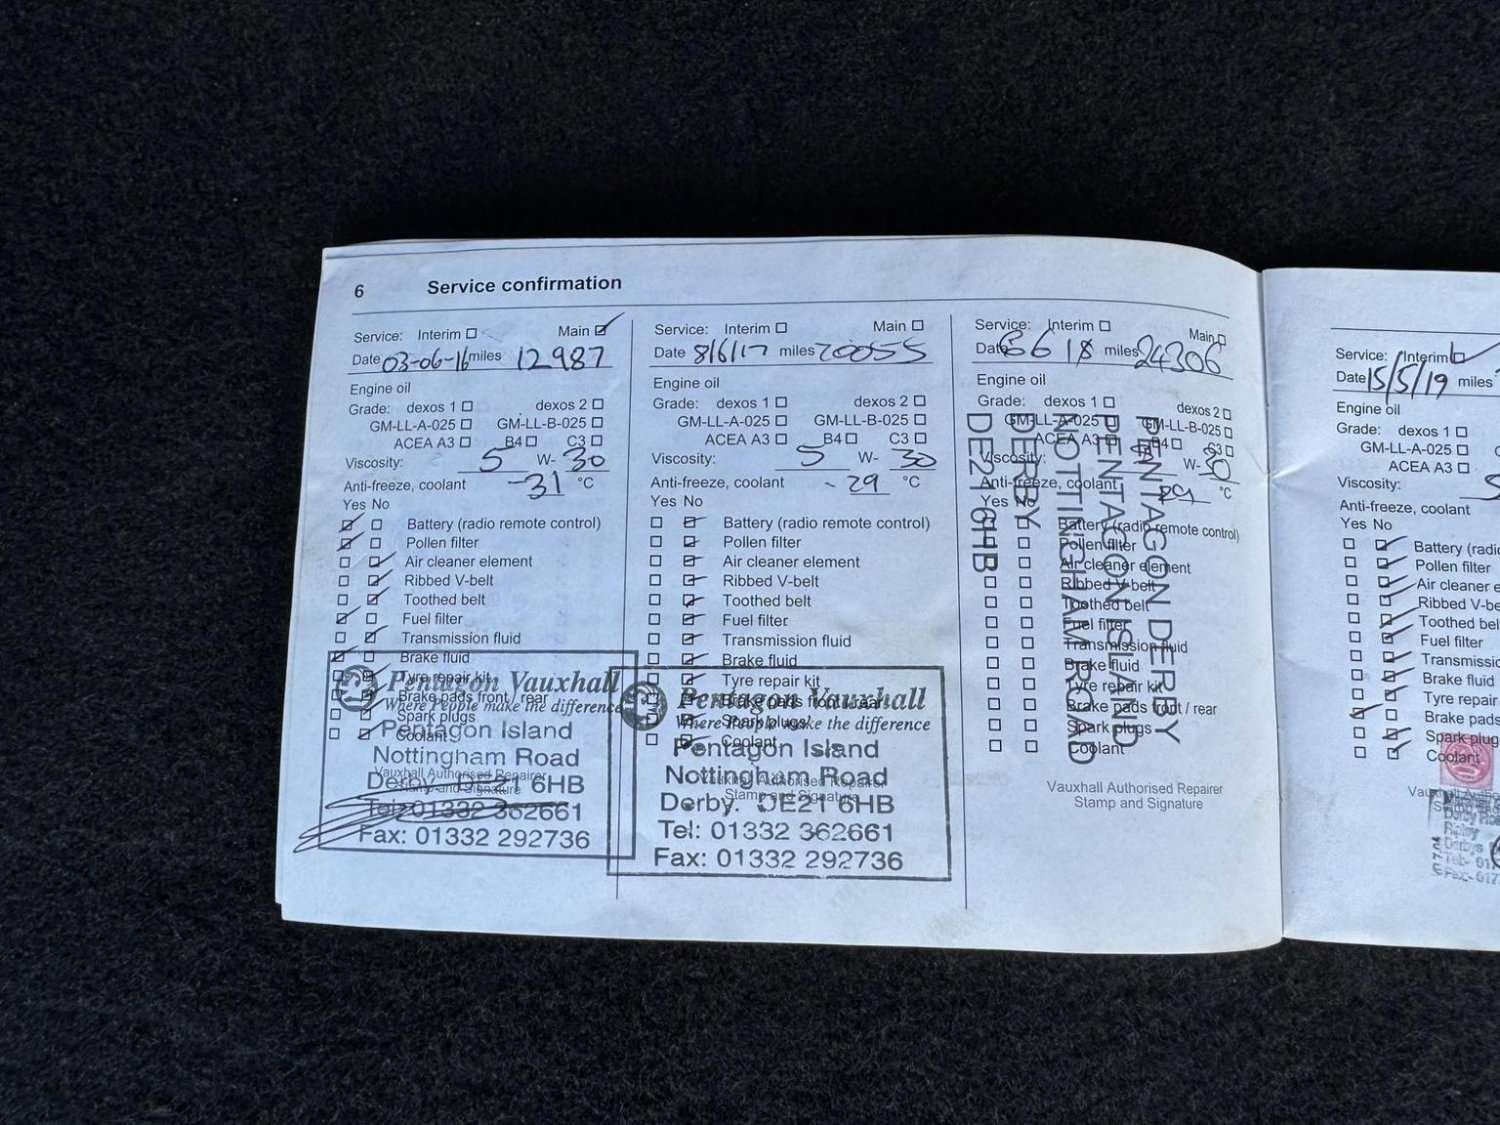 6 Service confirmation
Service: Interim Main
Date 03-06-16 miles 12987
Engine oil
Grade: dexos 1 dexos 2
GM-LL-A-025 GM-LL-B-025
ACEA A3 B4 C3
Viscosity: 5 W- 30
Anti-freeze, coolant -31 °C
Yes No
Battery (radio remote control)
Pollen filter
Air cleaner element
Ribbed V-belt
Toothed belt
Fuel filter
Transmission fluid
Brake fluid
Tyre repair kit
Brake pads front / rear
Spark plugs
Coolant
Vauxhall Authorised Repairer
Stamp and Signature
Pentagon Vauxhall
Where People make the difference
Pentagon Island
Nottingham Road
Derby DE21 6HB
Tel: 01332 362661
Fax: 01332 292736
Service: Interim Main
Date 8/6/17 miles 20055
Engine oil
Grade: dexos 1 dexos 2
GM-LL-A-025 GM-LL-B-025
ACEA A3 B4 C3
Viscosity: 5 W- 30
Anti-freeze, coolant - 29 °C
Yes No
Battery (radio remote control)
Pollen filter
Air cleaner element
Ribbed V-belt
Toothed belt
Fuel filter
Transmission fluid
Brake fluid
Tyre repair kit
Brake pads front / rear
Spark plugs
Coolant
Vauxhall Authorised Repairer
Stamp and Signature
Pentagon Vauxhall
Where People make the difference
Pentagon Island
Nottingham Road
Derby. DE21 6HB
Tel: 01332 362661
Fax: 01332 292736
Service: Interim Main
Date 6 6 18 miles 24306
Engine oil
Grade: dexos 1 dexos 2
GM-LL-A-025 GM-LL-B-025
ACEA A3 B4 C3
Viscosity: 5 W- 30
Anti-freeze, coolant °C
Yes No
Battery (radio remote control)
Pollen filter
Air cleaner element
Ribbed V-belt
Toothed belt
Fuel filter
Transmission fluid
Brake fluid
Tyre repair kit
Brake pads front / rear
Spark plugs
Coolant
PENTAGON DERBY
PENTAGON ISLAND
NOTTINGHAM ROAD
DERBY
DE21 6HB
Vauxhall Authorised Repairer
Stamp and Signature
Service: Interim
Date 15/5/19 miles
Engine oil
Grade: dexos 1
GM-LL-A-025
ACEA A3
Viscosity: 5
Anti-freeze, coolant
Yes No
Battery (radio
Pollen filter
Air cleaner e
Ribbed V-be
Toothed bel
Fuel filter
Transmissio
Brake fluid
Tyre repair
Brake pads
Spark plug
Coolant
Ripley
Derbys